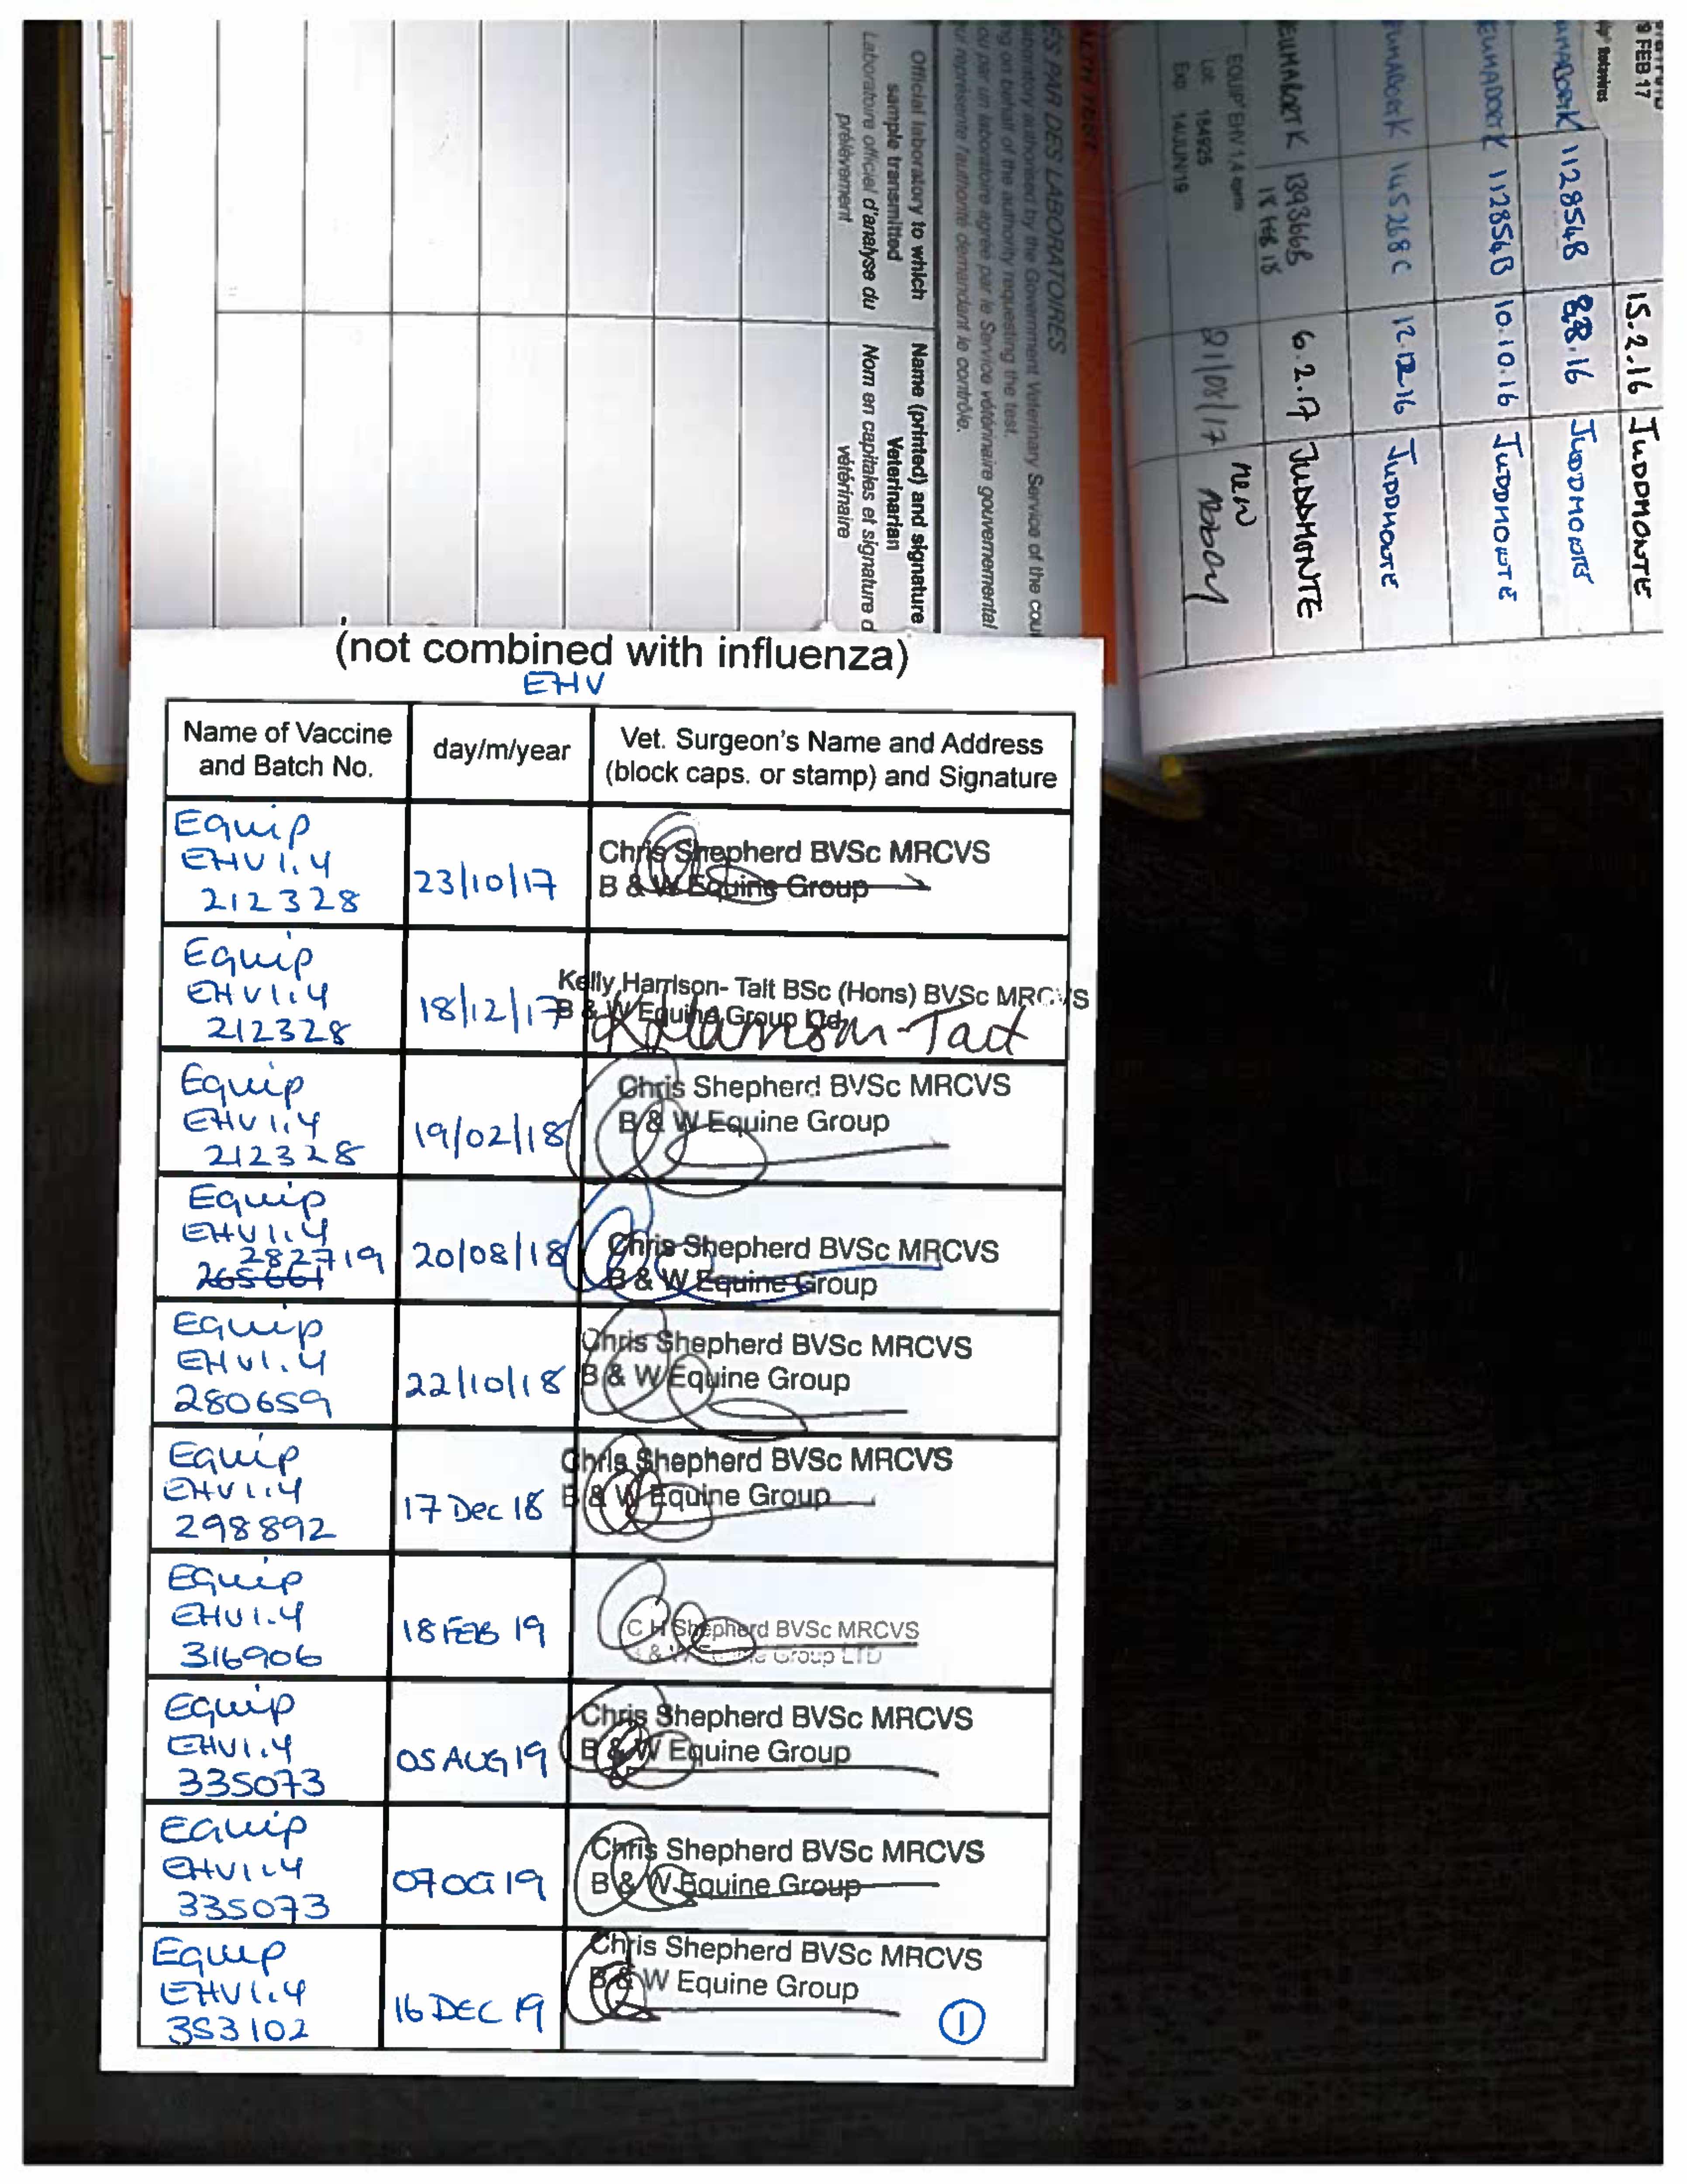 9 FEB 17
15.2.16 JUDDMONTE
112854B 8.8.16 JUDDMONTE
112854B 10.10.16 JUDDMONTE
145268C 12.12.16 JUDDMONTE
139366B 6.2.17 JUDDMONTE
18 FEB 18
EQUIP EHV 1.4
Lot: 184925
Exp: 14/JUN/19
21/08/17 new
Abbey
ES PAR DES LABORATOIRES
aboratory authorised by the Government Veterinary Service of the cou
ng on behalf of the authority requesting the test.
ou par un laboratoire agréé par le Service vétérinaire gouvernemental
ui représente l'autorité demandant le contrôle.
Official laboratory to which
sample transmitted
Laboratoire officiel d'analyse du
prélèvement
Name (printed) and signature
Veterinarian
Nom en capitales et signature d
vétérinaire
(not combined with influenza)
EHV
Name of Vaccine
and Batch No.
day/m/year
Vet. Surgeon's Name and Address
(block caps. or stamp) and Signature
Equip
EHV 1.4
212328
23/10/17
Chris Shepherd BVSc MRCVS
B & W Equine Group
Equip
EHV1.4
212328
18/12/17
Kelly Harrison- Tait BSc (Hons) BVSc MRCVS
B & W Equine Group Ltd
KHarrison-Tait
Equip
EHV 1.4
212328
19/02/18
Chris Shepherd BVSc MRCVS
B & W Equine Group
Equip
EHV 1.4
282719
265661
20/08/18
Chris Shepherd BVSc MRCVS
B & W Equine Group
Equip
EHV1.4
280659
22/10/18
Chris Shepherd BVSc MRCVS
B & W Equine Group
Equip
EHV1.4
298892
17 Dec 18
Chris Shepherd BVSc MRCVS
B & W Equine Group
Equip
EHV1.4
316906
18 FEB 19
C H Shepherd BVSc MRCVS
B & W Equine Group LTD
Equip
EHV1.4
335073
05 AUG 19
Chris Shepherd BVSc MRCVS
B & W Equine Group
Equip
EHV1.4
335073
07 OCT 19
Chris Shepherd BVSc MRCVS
B & W Equine Group
Equip
EHV1.4
353102
16 DEC 19
Chris Shepherd BVSc MRCVS
B & W Equine Group
1